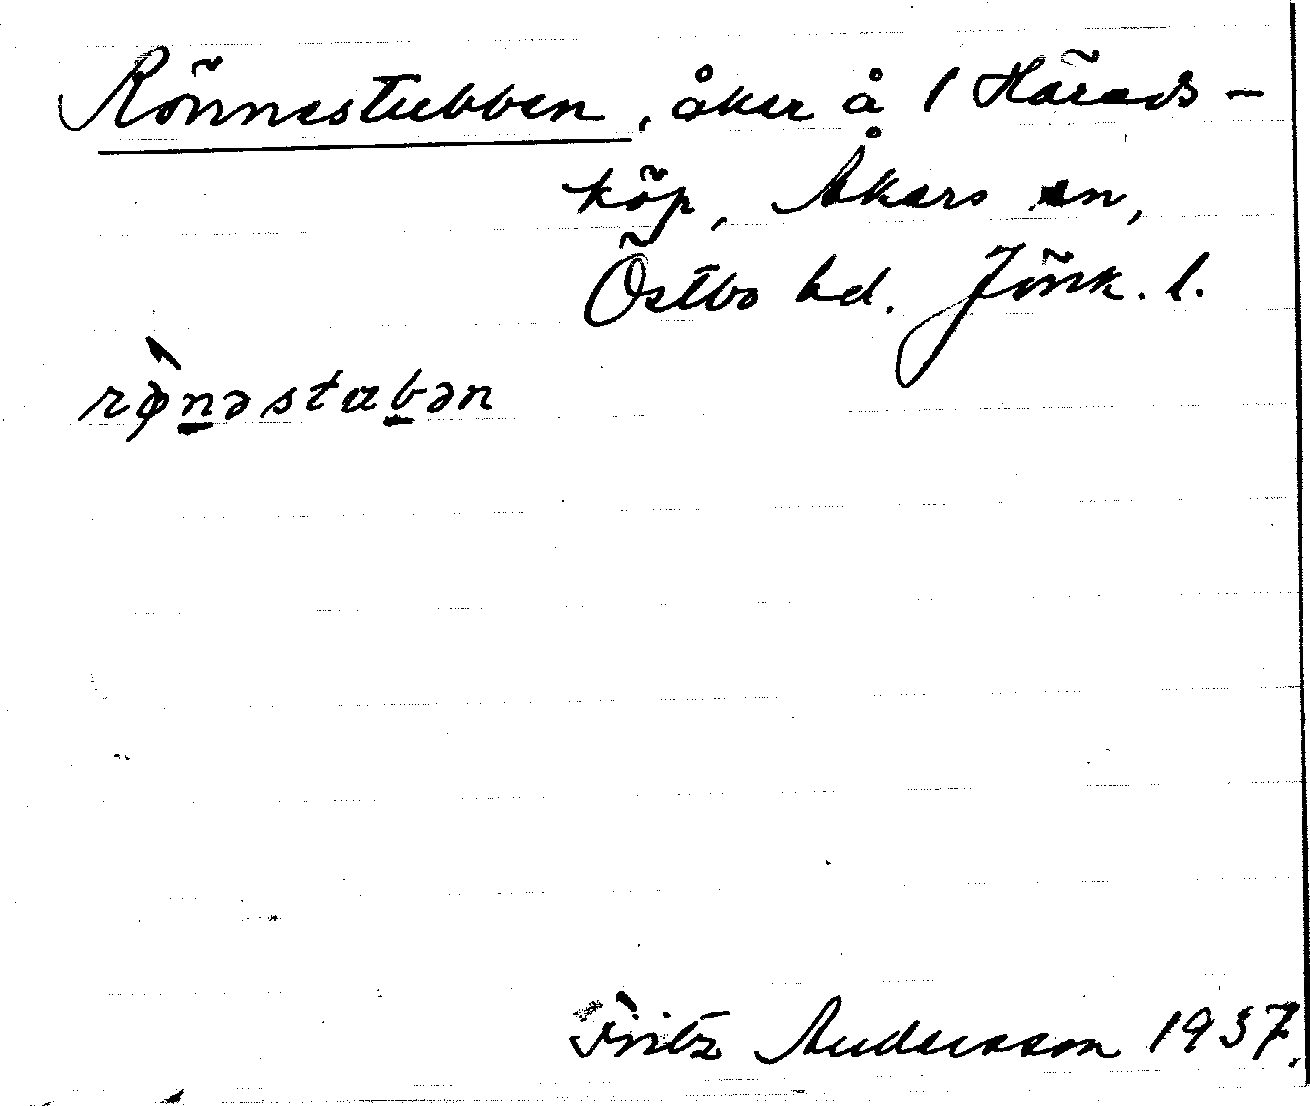 Rönnestubben, åker å 1 Härads-
köp, Åkers sn,
Östbo hd. Jönk. l.
rø̀n̲əstub̲ən
Fritz Andersson 1937.